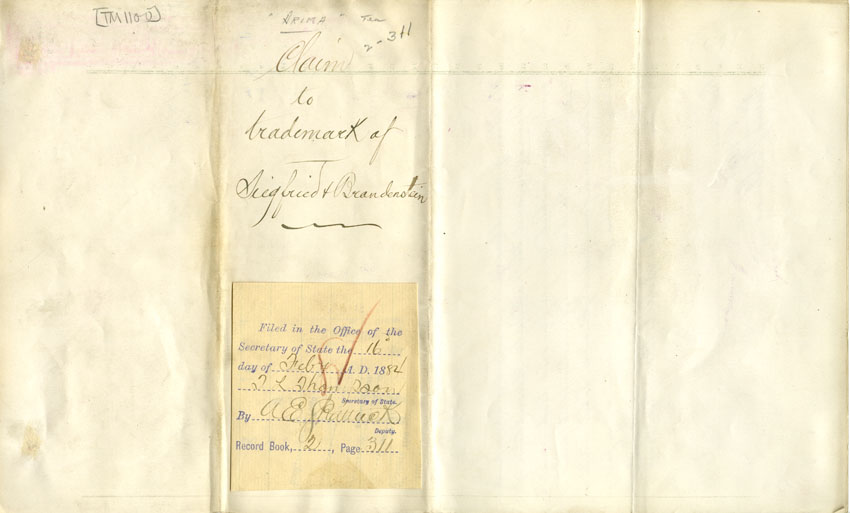 [TM1100]
"ARIMA" Tea
2-311
Claim
to
trademark of
Siegfried & Brandenstein
Filed in the Office of the
Secretary of State the 16"
day of Feby A. D. 1884
T L Thompson
Secretary of State.
By A E
Deputy.
Record Book, 2, Page 311